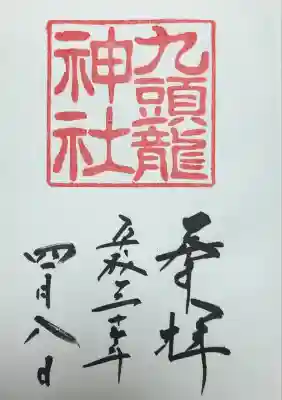 九頭龍
神社
奉拝
平成三十年
四月八日